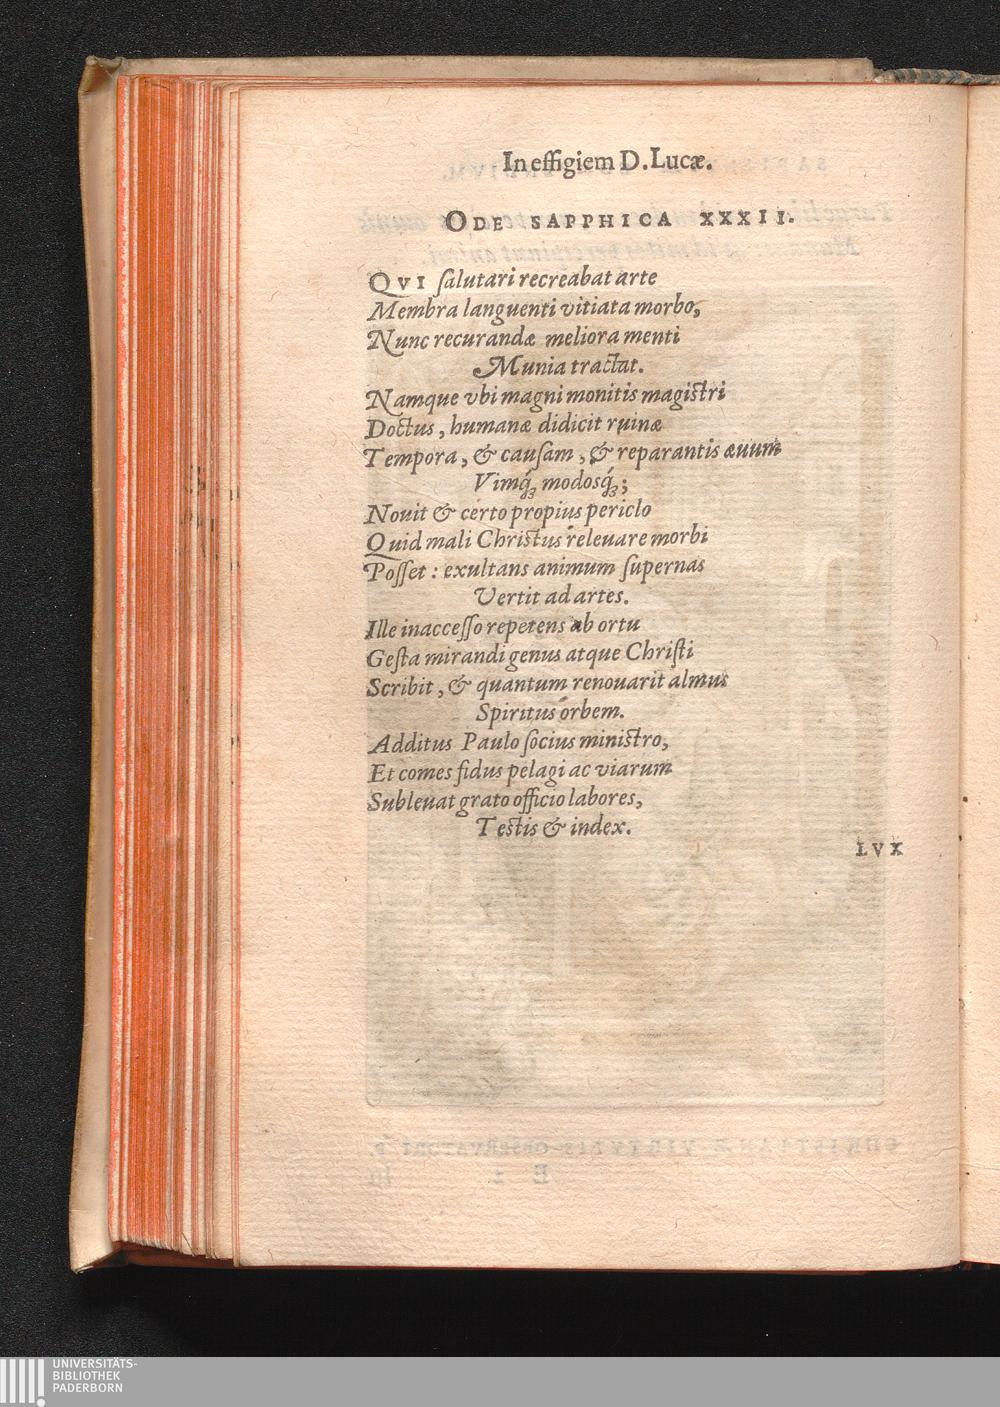 In effigiem D. Lucæ.
ODE SAPPHICA XXXII.
QVI salutari recreabat arte
Membra languenti vitiata morbo,
Nunc recurandæ meliora menti
Munia tractat.
Namque vbi magni monitis magistri
Doctus, humanæ didicit ruinæ
Tempora, & causam, & reparantis æuum
Vimq́; modosq́;;
Nouit & certo propius periclo
Quid mali Christus releuare morbi
Posset: exultans animum supernas
Vertit ad artes.
Ille inaccesso repetens ab ortu
Gesta mirandi genus atque Christi
Scribit, & quantum renouarit almus
Spiritus orbem.
Additus Paulo socius ministro,
Et comes fidus pelagi ac viarum
Subleuat grato officio labores,
Testis & index.
LVX
UNIVERSITÄTS-
BIBLIOTHEK
PADERBORN